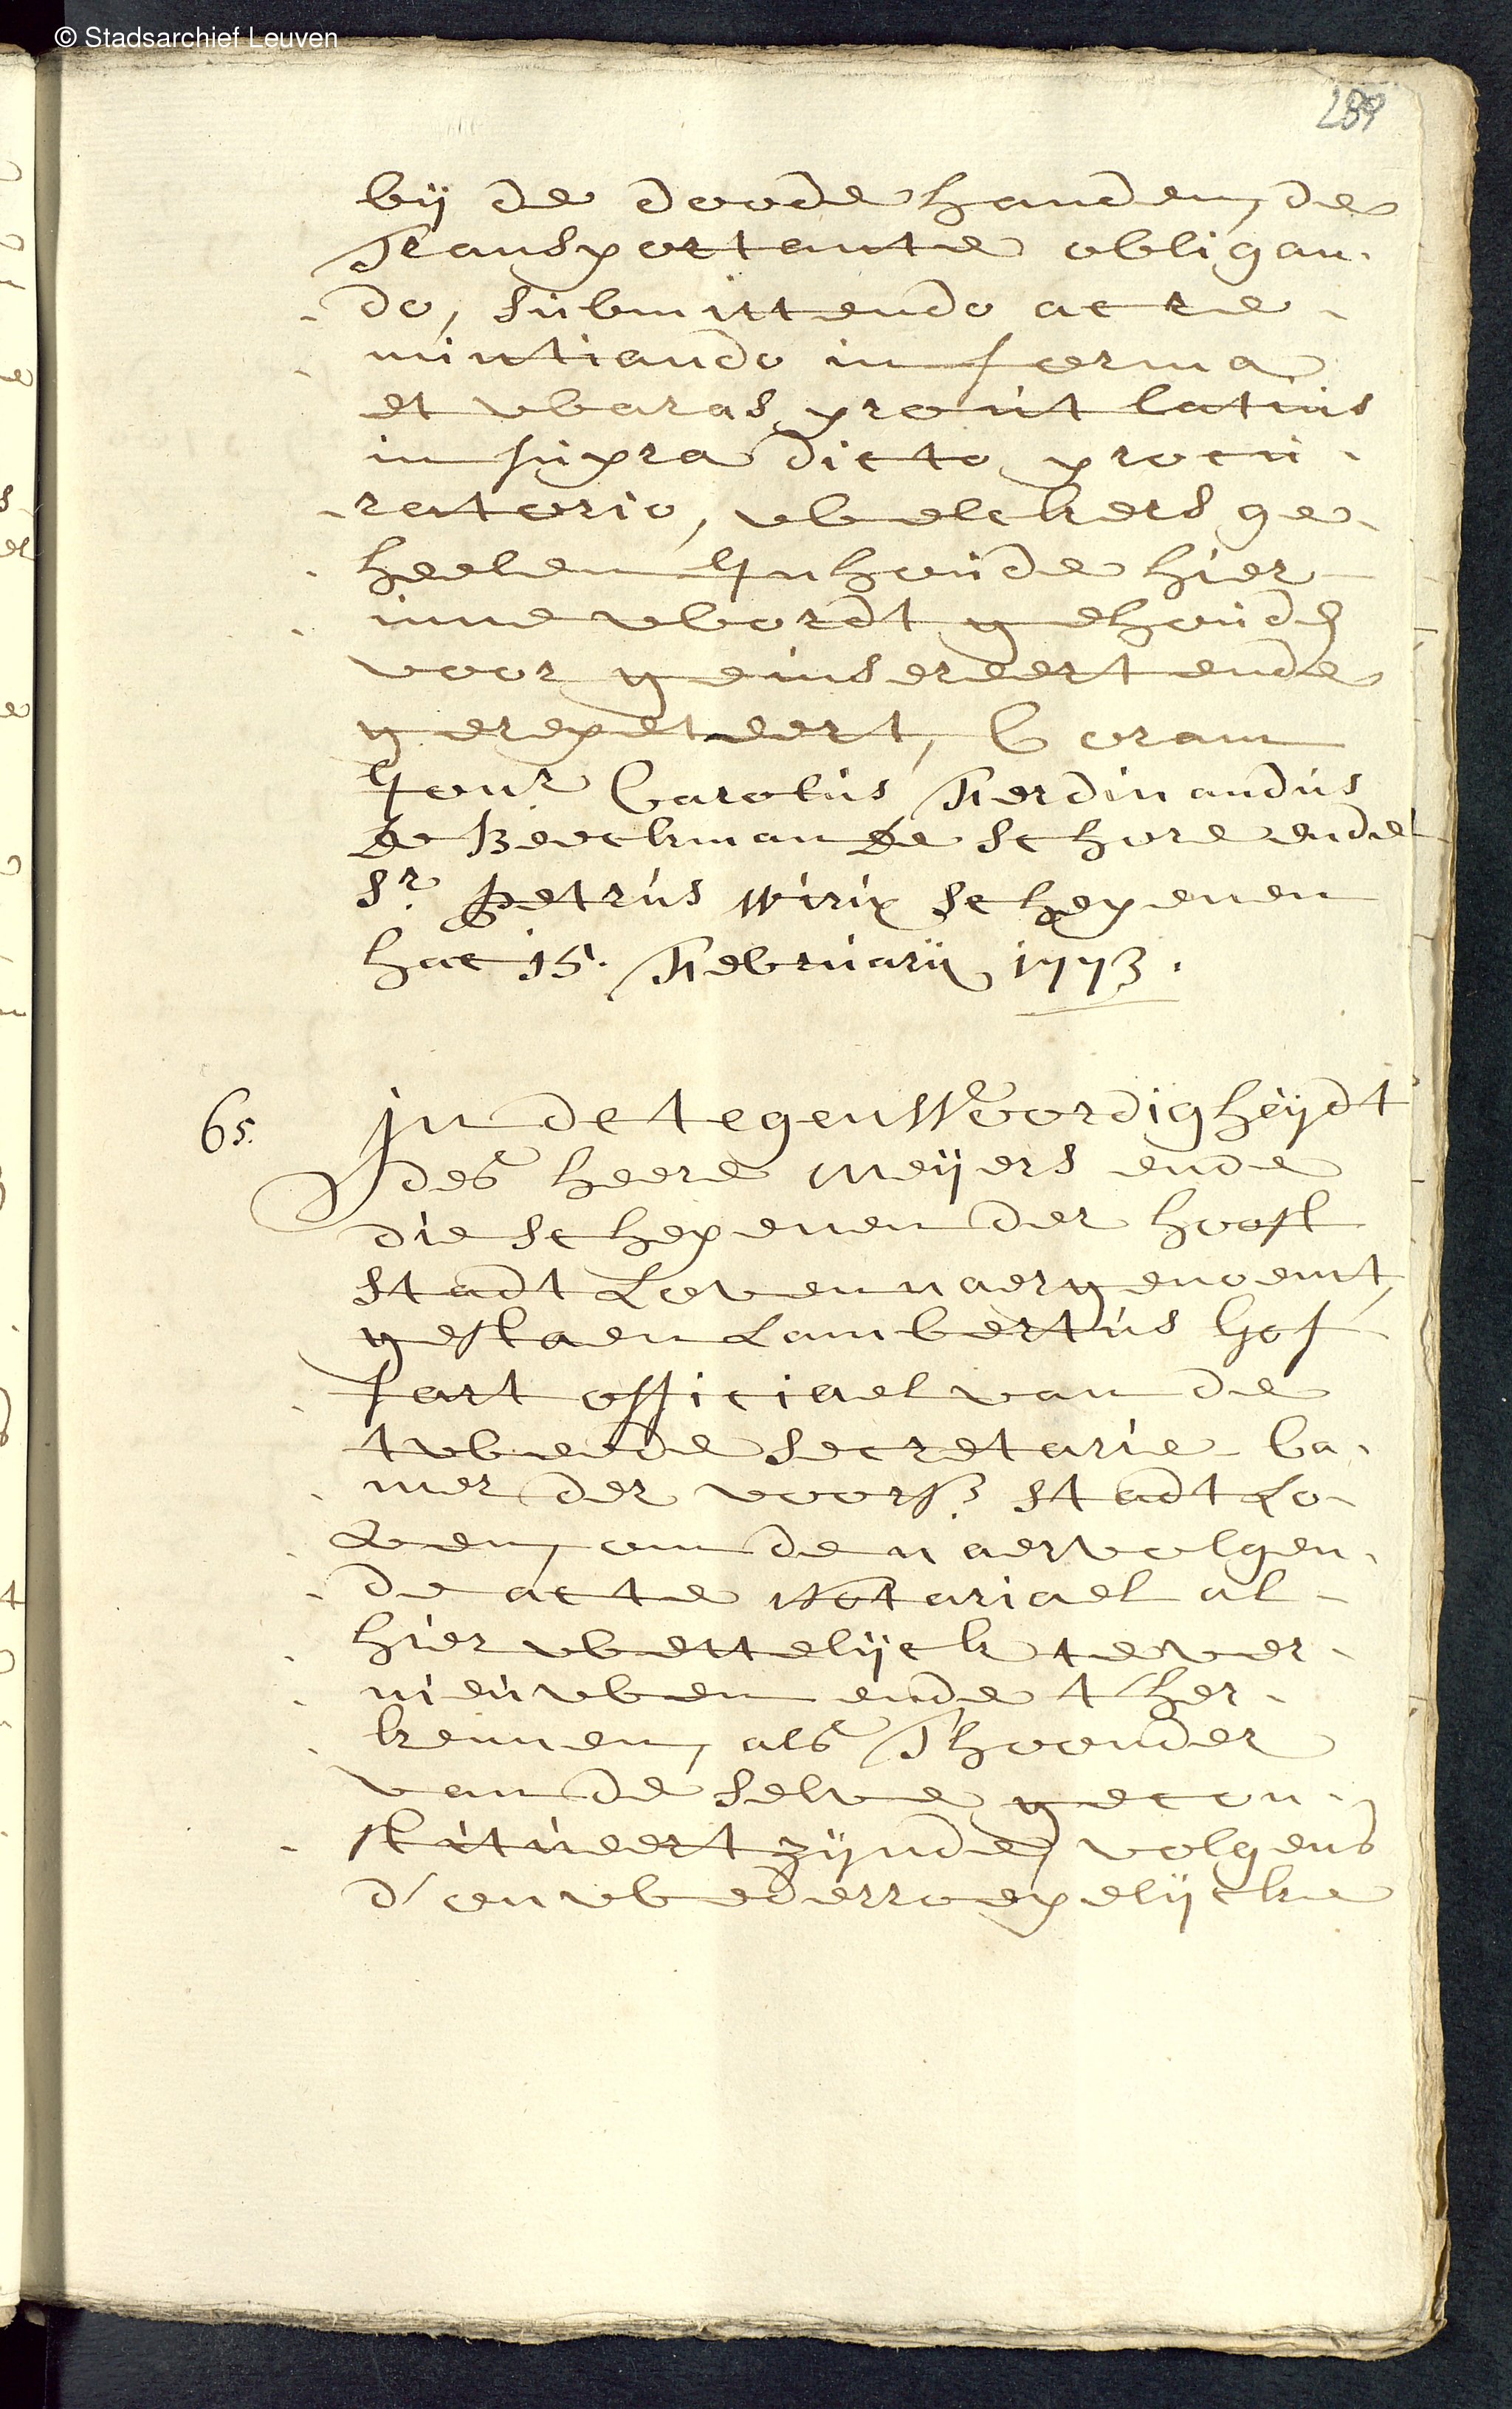 © Stadsarchief Leuven
289
bij de doode handen, de
Transportante obligan-
-do, submittendo ac re-
-nuntiando in forma
et waras prout latius
in supra dicto procu-
-ratorio, welckers ge-
-heelen Inhoude hier
-inne wordt gehoude
voor geinsereert ende
gerepeteert, Coram
Jonr Carolus Ferdinandus
de Beeckman de Schore ende
Sr. Petrus Wirix schepenen
hac 15. Februarij 1773.
65. In de tegenWoordigheijdt
des heere Meijers ende
die schepenen der hooft
stadt Loven naergenoemt,
gestaen Lambertus Gof
-fart officiael van de
tweede secretarie Ca-
-mer der voors. stadt Lo-
-ven, om de naervolgen-
-de acte Notariael al-
-hier wettelijck te ver-
-nieuwen ende t'her-
-kennen, als Thoonder
van de selve gecon-
-stitueert zijnde, volgens
d'onwederroepelijcke